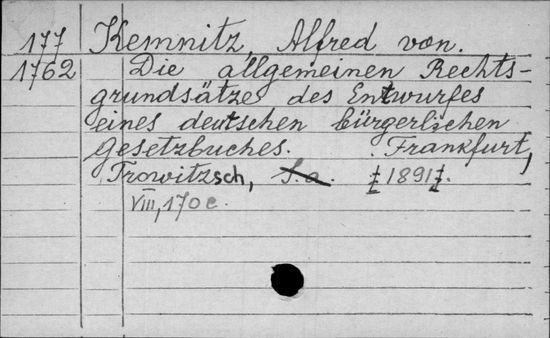 177 Kemnitz, Alfred von.
1762 Die allgemeinen Rechts-
grundsätze des Entwurfes
eines deutschen bürgerlichen
Gesetzbuches. Frankfurt,
Trowitzsch, S.a. [1891].
VIII, 170 c.